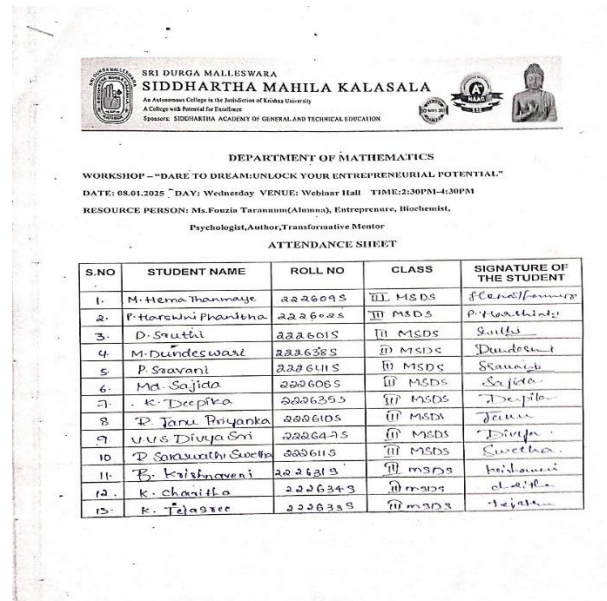 SRI DURGA MALLESWARA
SIDDHARTHA MAHILA KALASALA
An Autonomous College in the Jurisdiction of Krishna University
A College with Potential for Excellence
Sponsors: SIDDHARTHA ACADEMY OF GENERAL AND TECHNICAL EDUCATION
A+
NAAC
DEPARTMENT OF MATHEMATICS
WORKSHOP – "DARE TO DREAM:UNLOCK YOUR ENTREPRENEURIAL POTENTIAL"
DATE: 08.01.2025 DAY: Wednesday VENUE: Webinar Hall TIME:2:30PM-4:30PM
RESOURCE PERSON: Ms.Fouzia Tarannum(Alumna), Entreprenure, Biochemist,
Psychologist,Author,Transformative Mentor
ATTENDANCE SHEET
S.NO STUDENT NAME ROLL NO CLASS SIGNATURE OF THE STUDENT
1. M. Hema Thanmaye 222609S III MSDS
2. P. Harshini Phanitha 222602S III MSDS P. Harshini
3. D. Sruthi 222601S III MSDS Sruthi
4. M. Dundeswari 222638S III MSDS
5. P. Sravani 222641S III MSDS Sravani
6. Md. Sajida 222608S III MSDS Sajida
7. K. Deepika 222635S III MSDS Deepika
8 P. Janu Priyanka 222610S III MSDS Janu
9 V.V.S Divya Sri 222647S III MSDS Divya
10 P. Saraswathi Swetha 222611S III MSDS Swetha
11. B. Krishnaveni 222631S III MSDS
12. K. Charitha 222634S III MSDS charitha
13. K. Tejasree 222633S III MSDS